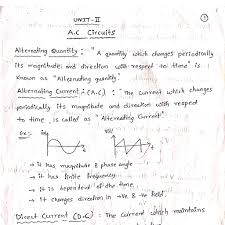 UNIT-II
1
A.C Circuits
Alternating Quantity : "A quantity which changes periodically
its magnitude and direction with respect to time" is
known as "Alternating quantity".
Alternating Current : (A.C) : The current which changes
periodically its magnitude and direction with respect
to time, is called as "Alternating Current".
Ex:-
→ it has magnitude & phase angle
→ it has finite frequency.
→ it is dependent of the time.
→ it changes direction in +ve & -ve field.
Direct Current (D.C) : The current which maintains